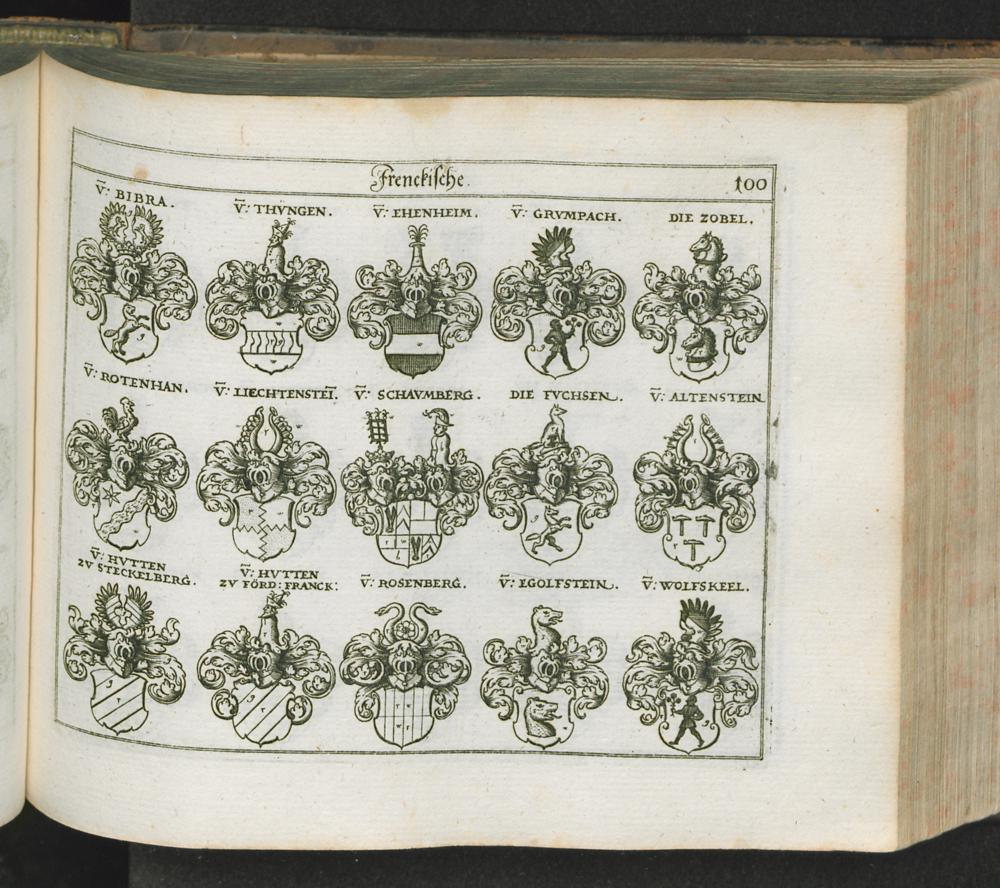 Frenckische.
100
V̄: BIBRA.
V̄: THVNGEN.
V̄: EHENHEIM.
V̄: GRVMPACH.
DIE ZOBEL.
V̄: ROTENHAN.
V̄: LIECHTENSTEI̅.
V̄: SCHAVMBERG.
DIE FVCHSEN.
V̄: ALTENSTEIN
V̄: HVTTEN
ZV STECKELBERG.
V̄: HVTTEN
ZV FÖRD: FRANCK:
V̄: ROSENBERG.
V̄: EGOLFSTEIN.
V̄: WOLFSKEEL.